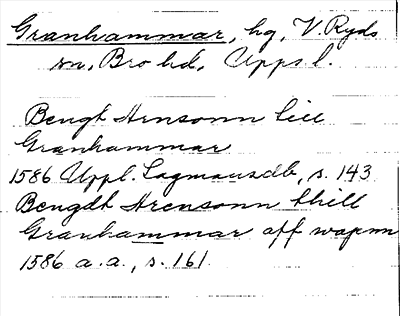 Granhammar, hg, V. Ryds
sn, Bro hd, Upps l.
Bengt Arnsonn till
Granhammar
1586 Uppl. Lagmansdb, s. 143
Bengdt Arensonn thill
Granhammar aff wapnn
1586 a.a., s. 161